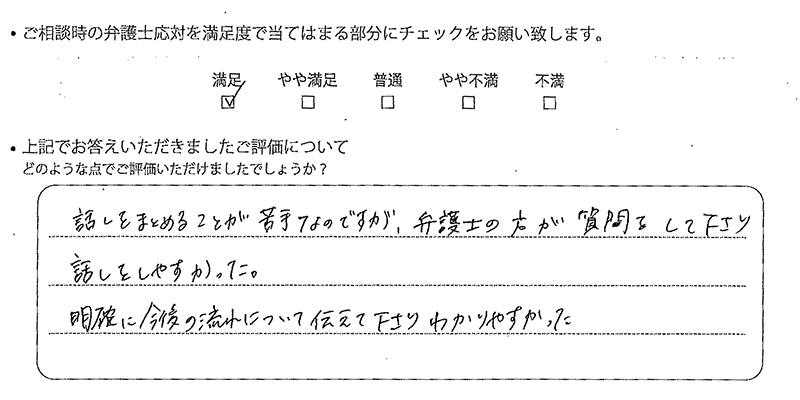 ・ご相談時の弁護士応対を満足度で当てはまる部分にチェックをお願い致します。
満足 やや満足 普通 やや不満 不満
☑ □ □ □ □
・上記でお答えいただきましたご評価について
どのような点でご評価いただけましたでしょうか？
話しをまとめることが苦手なのですが、弁護士の方が質問をして下さり
話しをしやすかった。
明確に今後の流れについて伝えて下さりわかりやすかった